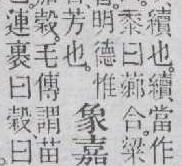 續也。續當作
黍曰薌合。梁
明德惟
芳也。
象嘉
穀。毛傳謂苗
連裹曰穀。曰